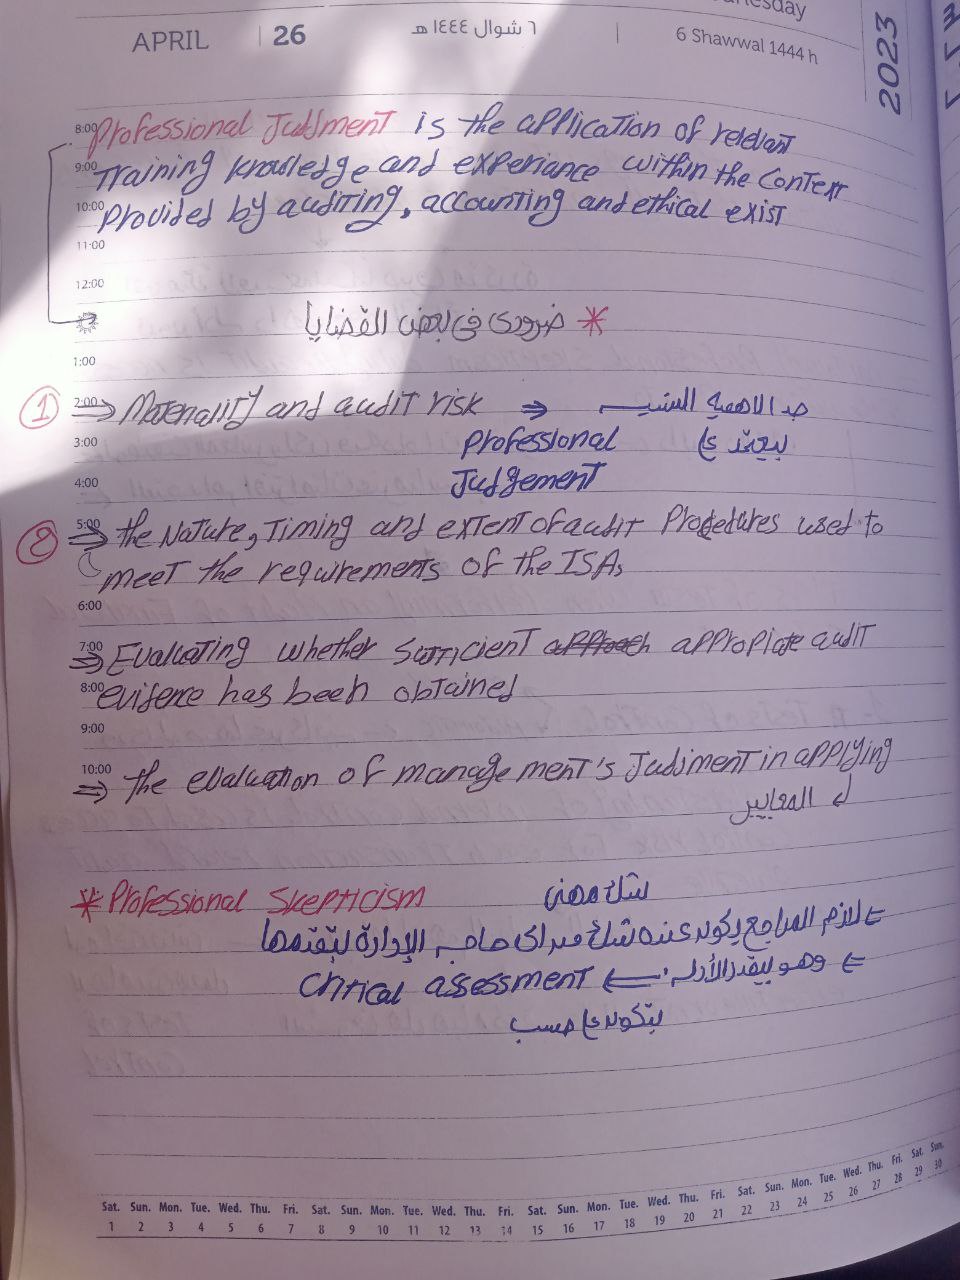 APRIL 26 ٦ شوال ١٤٤٤ هـ 6 Shawwal 1444 h 2023
8:00 Professional Judgment is the application of relevant
9:00 Training knowledge and experiance within the Context
10:00 Provided by auditing, accounting and ethical exist
11:00
12:00
* ضرورى فى بعض القضايا
1:00
① 2:00 ⇒ Materiality and audit risk ⇒ حد الاهمية النسبية
3:00 Professional بيعتمد ع
4:00 Judgement
② 5:00 ⇒ the Nature, Timing and extent of audit Procedures used to
meet the requirements of the ISAs
6:00
7:00 ⇒ Evaluating whether sufficient appropiate audit
8:00 evidence has been obtained
9:00
10:00 ⇒ the evaluation of management's Judjment in applying
المعايير
* Professional Skepticism شك مهنى
⇐ لازم المراجع يكون عنده شك الإدارة بتقدمها
⇐ وهو بيقدر الأدلة ⇐ Chrical assessment
بتكون ع حسب
Sat. Sun. Mon. Tue. Wed. Thu. Fri. Sat. Sun. Mon. Tue. Wed. Thu. Fri. Sat. Sun. Mon. Tue. Wed. Thu. Fri. Sat. Sun. Mon. Tue. Wed. Thu. Fri. Sat. Sun.
1 2 3 4 5 6 7 8 9 10 11 12 13 14 15 16 17 18 19 20 21 22 23 24 25 26 27 28 29 30